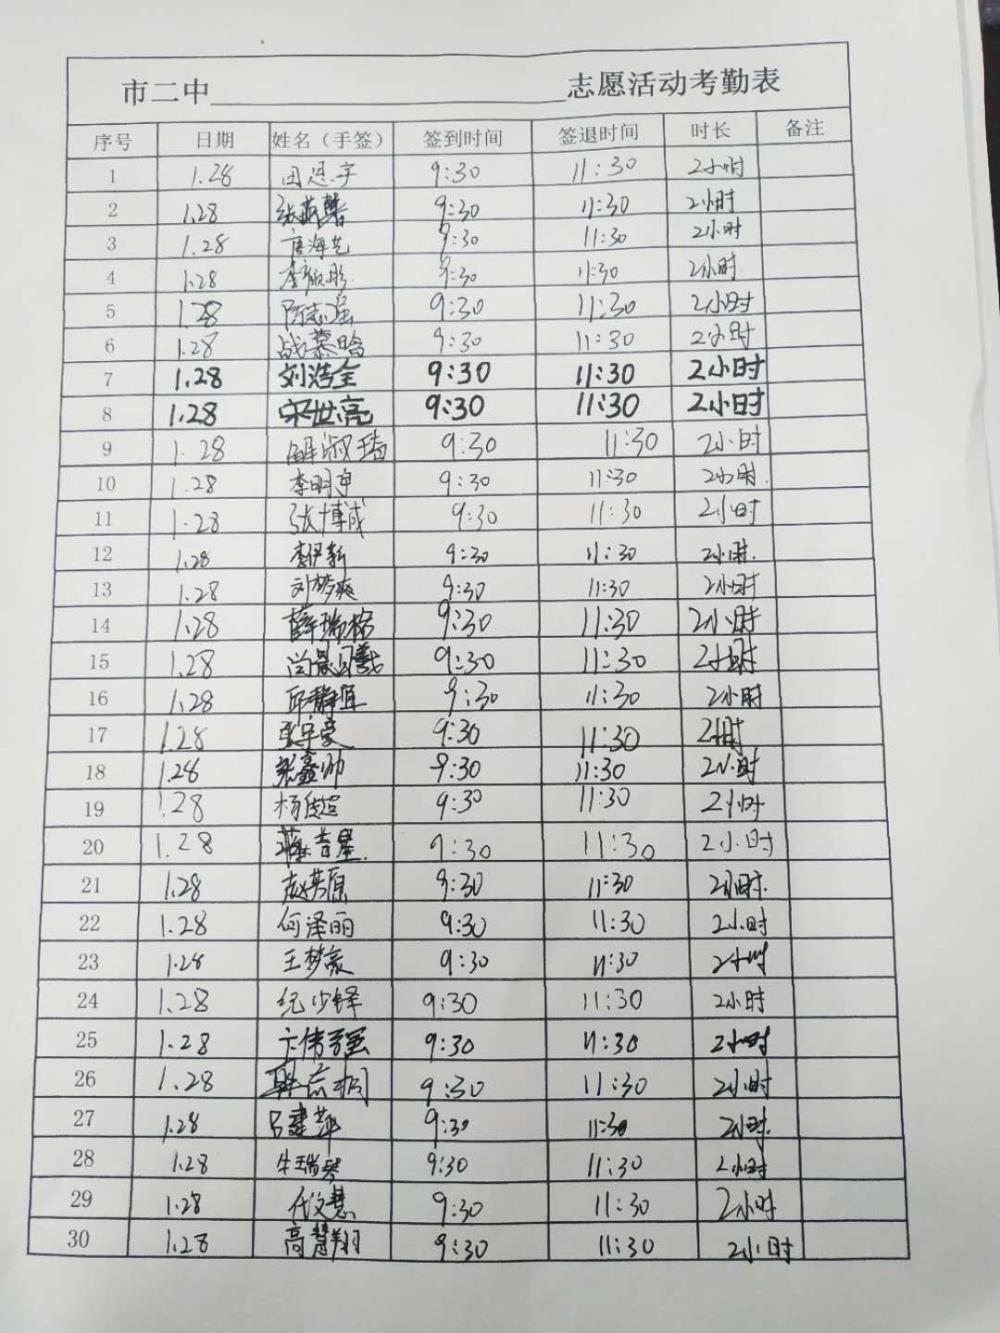 市二中____________________志愿活动考勤表
序号 日期 姓名（手签） 签到时间 签退时间 时长 备注
1 1.28 田恩宇 9:30 11:30 2小时
2 1.28 张 馨 9:30 11:30 2小时
3 1.28 唐海艺 9:30 11:30 2小时
4 1.28 李 彤 9:30 11:30 2小时
5 1.28 陈志强 9:30 11:30 2小时
6 1.28 战慕晗 9:30 11:30 2小时
7 1.28 刘浩全 9:30 11:30 2小时
8 1.28 宋世亮 9:30 11:30 2小时
9 1.28 解淑 9:30 11:30 2小时
10 1.28 李明宇 9:30 11:30 2小时
11 1.28 张博诚 9:30 11:30 2小时
12 1.28 李伊新 9:30 11:30 2小时
13 1.28 刘梦爽 9:30 11:30 2小时
14 1.28 薛瑞格 9:30 11:30 2小时
15 1.28 尚晨曦 9:30 11:30 2小时
16 1.28 邱静 9:30 11:30 2小时
17 1.28 宇豪 9:30 11:30 2小时
18 1.28 张鑫帅 9:30 11:30 2小时
19 1.28 杨 9:30 11:30 2小时
20 1.28 蒋吉星 9:30 11:30 2小时
21 1.28 赵 原 9:30 11:30 2小时
22 1.28 何泽丽 9:30 11:30 2小时
23 1.28 王梦豪 9:30 11:30 2小时
24 1.28 纪少铎 9:30 11:30 2小时
25 1.28 卞伟强 9:30 11:30 2小时
26 1.28 桐 9:30 11:30 2小时
27 1.28 吕建萍 9:30 11:30 2小时
28 1.28 牛瑞琴 9:30 11:30 2小时
29 1.28 代文慧 9:30 11:30 2小时
30 1.28 高慧翔 9:30 11:30 2小时